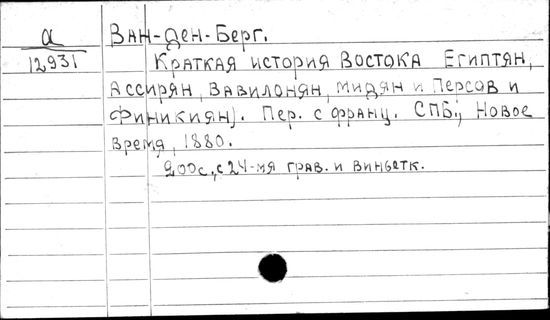 а
12931
Ван-ден-Берг.
Краткая история Востока Египтян,
Ассирян, Вавилонян, мидян и Персов и
Финикиян). Пер. с франц. СПБ., Новое
время, 1880.
200с., с 24-мя грав. и виньетк.